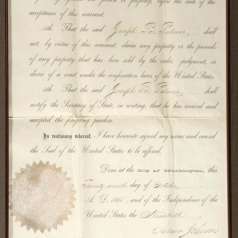 acceptance of this warrant.
4th. That the said Joseph shall
not, by virtue of this warrant, claim any property or the proceeds
of any property that has been sold by the order, judgment, or
decree of a court under the confiscation laws of the United States.
5th. That the said Joseph shall
notify the Secretary of State, in writing, that he has received and
accepted the foregoing pardon.
In testimony whereof, I have hereunto signed my name and caused
the Seal of the United States to be affixed.
Done at the City of Washington, this
day of
A. D. 186 , and of the Independence of
the United States the Ninetieth
Andrew Johnson